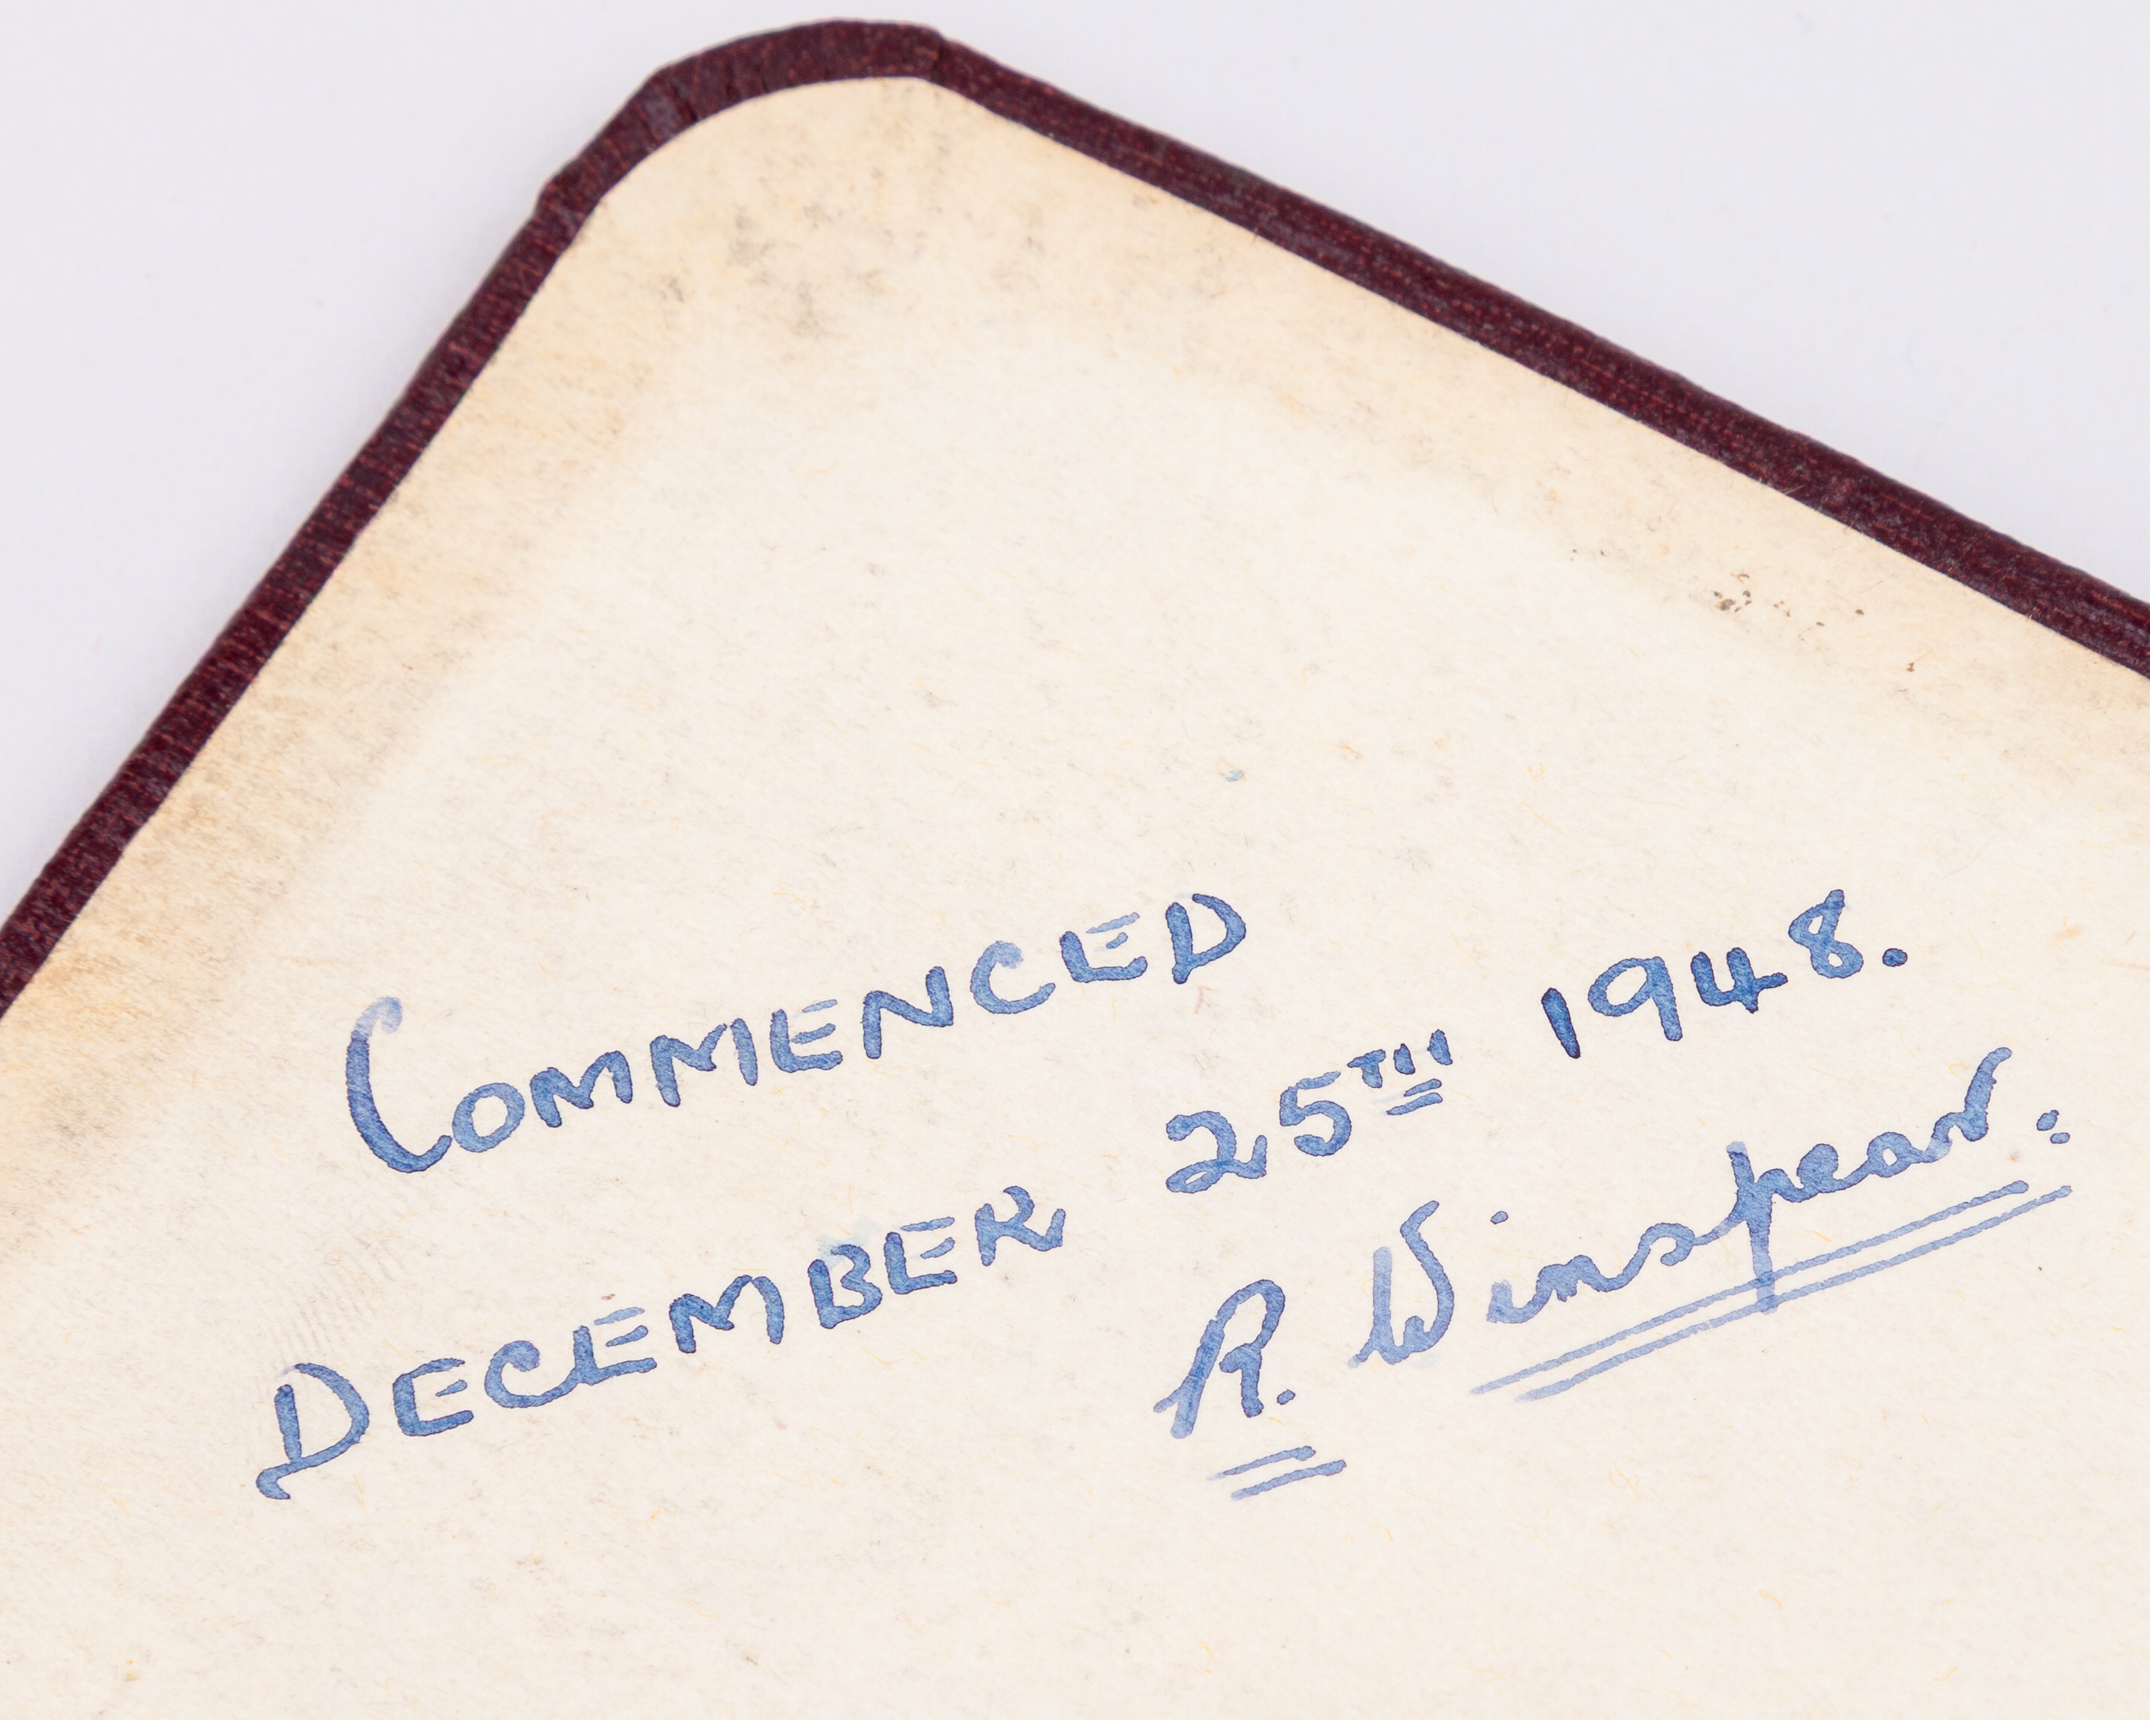 COMMENCED
DECEMBER 25TH 1948.
R. Winspear.